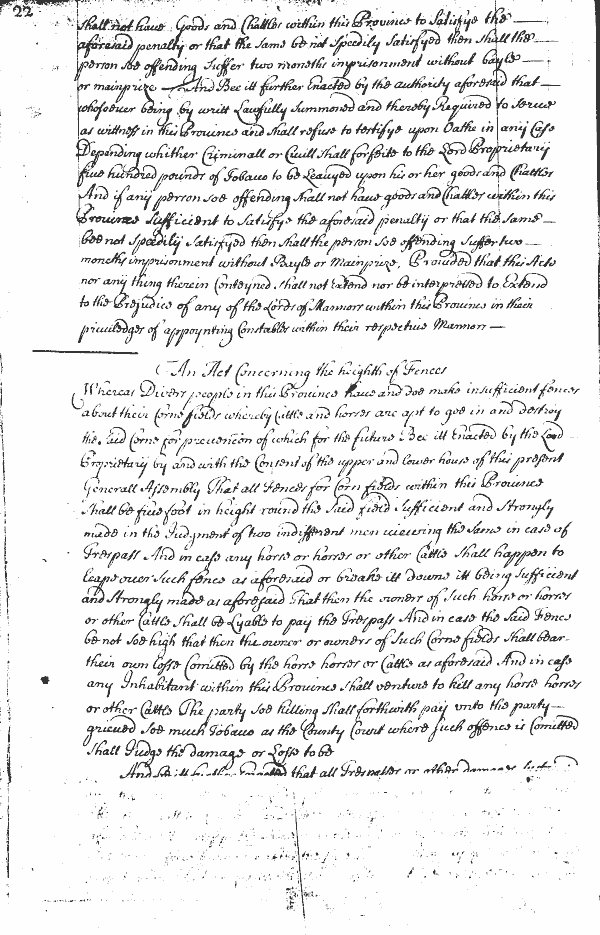 22
shall not have Goods and Chattles within this Province to Satisfye the
aforesaid penalty or that the Same be not Speedily Satisfyed then shall the
person soe offending Suffer two moneths imprisonment without bayle
or mainprize And Bee itt further Enacted by the authority aforesaid that
whosoever being by writt Lawfully Summoned and thereby Required to Serue
as wittness in this Prouince and shall refuse to testifye upon Oathe in any Case
Depending whither Criminall or Civill shall forfeite to the Lord Proprietary
five hundred pounds of Tobacco to be Leauyed upon his or her goods and Chattles
And if any person soe offending Shall not have goods and Chattles within this
Prouince Sufficient to Satisfye the aforesaid penalty or that the Same
bee not Speedily Satisfyed then Shall the person soe offending Suffer two
moneths imprisonment without Bayle or Mainprize. Provided that this Acte
nor any thing therein Conteyned shall not Extend nor be interpreted to Extend
to the Prejudice of any of the Lords of Mannors within this Province in their
priviledges of appoynting Constables within their respective Mannors
An Act Concerning the heighth of Fences
Whereas Divers people in this Province have and doe make insufficient fences
about their Corne fields whereby Cattle and horses are apt to goe in and destroy
the said Corne for prevencon of which for the future Bee itt Enacted by the Lord
Proprietary by and with the Consent of the upper and lower house of this present
Generall Assembly That all Fences for Corn fields within this Province
shall be five foot in height round the said field Sufficient and Strongly
made in the Judgment of two indifferent men viewing the Same in case of
Trespass And in case any horse or horses or other Cattle shall happen to
leape over such fence as aforesaid or breake itt downe itt being Sufficient
and Strongly made as aforesaid That then the owners of Such horse or horses
or other Cattle Shall be Lyable to pay the Trespass And in case the said Fence
be not soe high that then the owner or owners of Such Corne fields shall bear
their own Losse Comitted by the horse horses or Cattle as aforesaid And in case
any Inhabitant within this Province shall venture to kill any horse horses
or other Cattle The party soe killing shall forthwith pay vnto the party
grieued soe much Tobacco as the County Court where such offence is Comitted
shall Judge the damage or Losse to be
And be itt further Enacted that all Trespasses or other damages